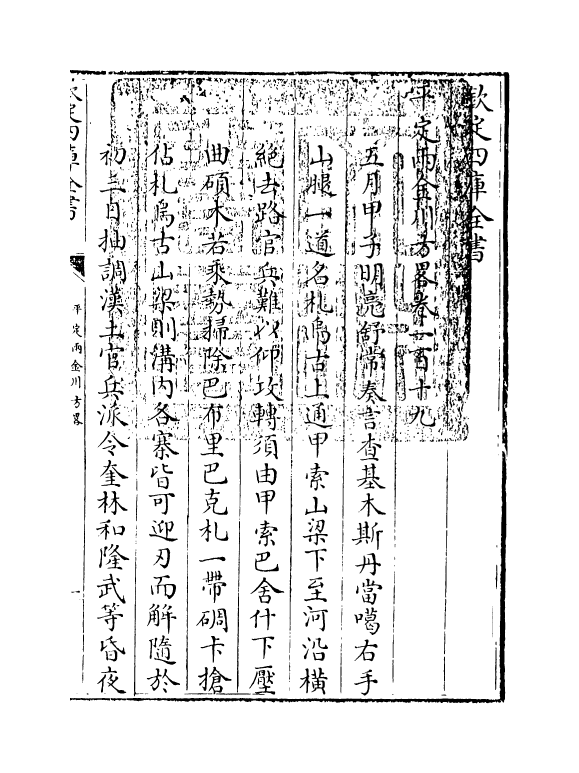 欽定四庫全書
平定兩金川方畧卷一百十九
五月甲子明亮舒常奏言查基木斯丹當噶右手
山腿一道名札烏古上通甲索山梁下至河沿橫
絕去路官兵難以仰攻轉須由甲索巴舍什下壓
曲碩木若乘勢掃除巴布里巴克札一帶碉卡搶
佔札烏古山梁則溝内各寨皆可迎刃而解隨於
初三日抽調漢土官兵派令奎林和隆武等昏夜
欽定四庫全書
平定兩金川方畧
一